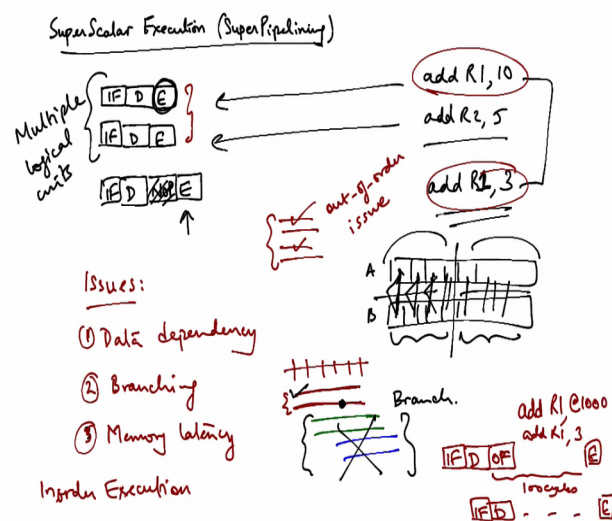 SuperScalar Execution (SuperPipelining)
IF D E
IF D E
IF D E
Multiple
logical
units
add R1, 10
add R2, 5
add R1, 3
out-of-order
issue
A
B
Issues:
① Data dependency
② Branching
③ Memory latency
Inorder Execution
Branch.
add R1, @1000
add R1, 3
IF D OF E
100 cycles
IF D - - - E